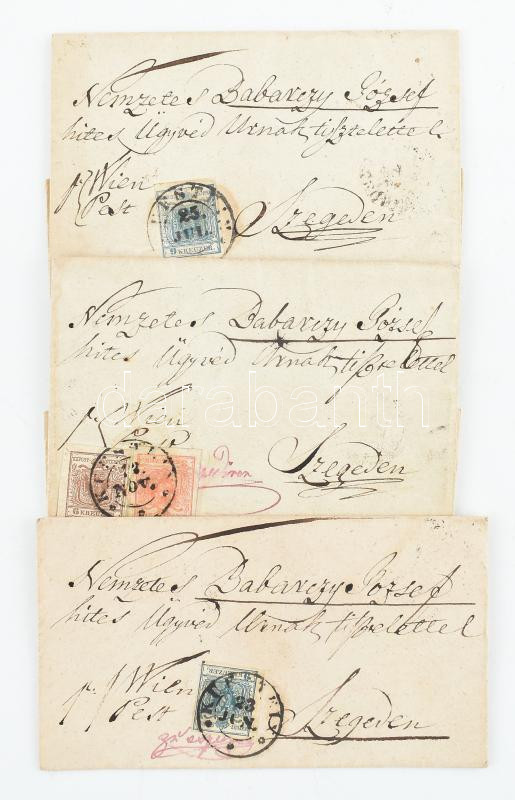 Nemzetes Babarczy József
hites Ügyvéd Urnak tisztelettel
pr Wien
Pest
Szegeden
25.
JUL.
9 KREUZER
Nemzetes Babarczy József
hites Ügyvéd Urnak tisztelettel
pr Wien
Szegeden
12.
NOV.
6 KREUZER
darabanth
Nemzetes Babarczy József
hites Ügyvéd Urnak tisztelettel
pr Wien
Pest
Szegeden
23
JUN.